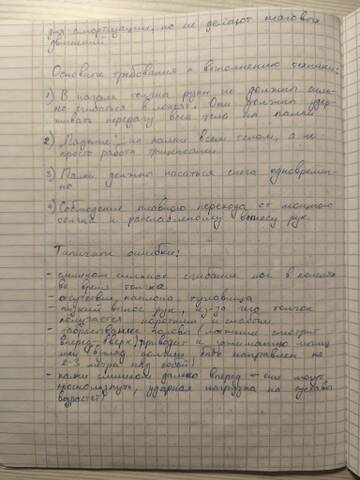 для амортизации, но не делают толчковых
движений.
Основные требования к выполнению техники:
1) В начале толчка руки не должны силь-
но сгибаться в локтях. Они должны удер-
живать передачу веса тела на палки
2) „Падение" на палки всем телом, а не
просто работа трицепсами.
3) Палки должны касаться снега одновремен-
но
4) Соблюдение плавного перехода от мощного
толчка к расслабленному выносу рук.
Типичные ошибки:
- слишком сильное сгибание ног в коленях
во время толчка
- отсутствие наклона туловища
- низкий вынос рук, из-за чего толчок
получается коротким и слабым
- забрасывание головы (лыжник смотрит
вперед-вверх) приводит к зажиманию мышц
шеи (взгляд должен быть направлен на
2-3 метра над собой)
- палки слишком далеко вперед - они могут
проскользнуть, ударная нагрузка на суставы
возрастет)